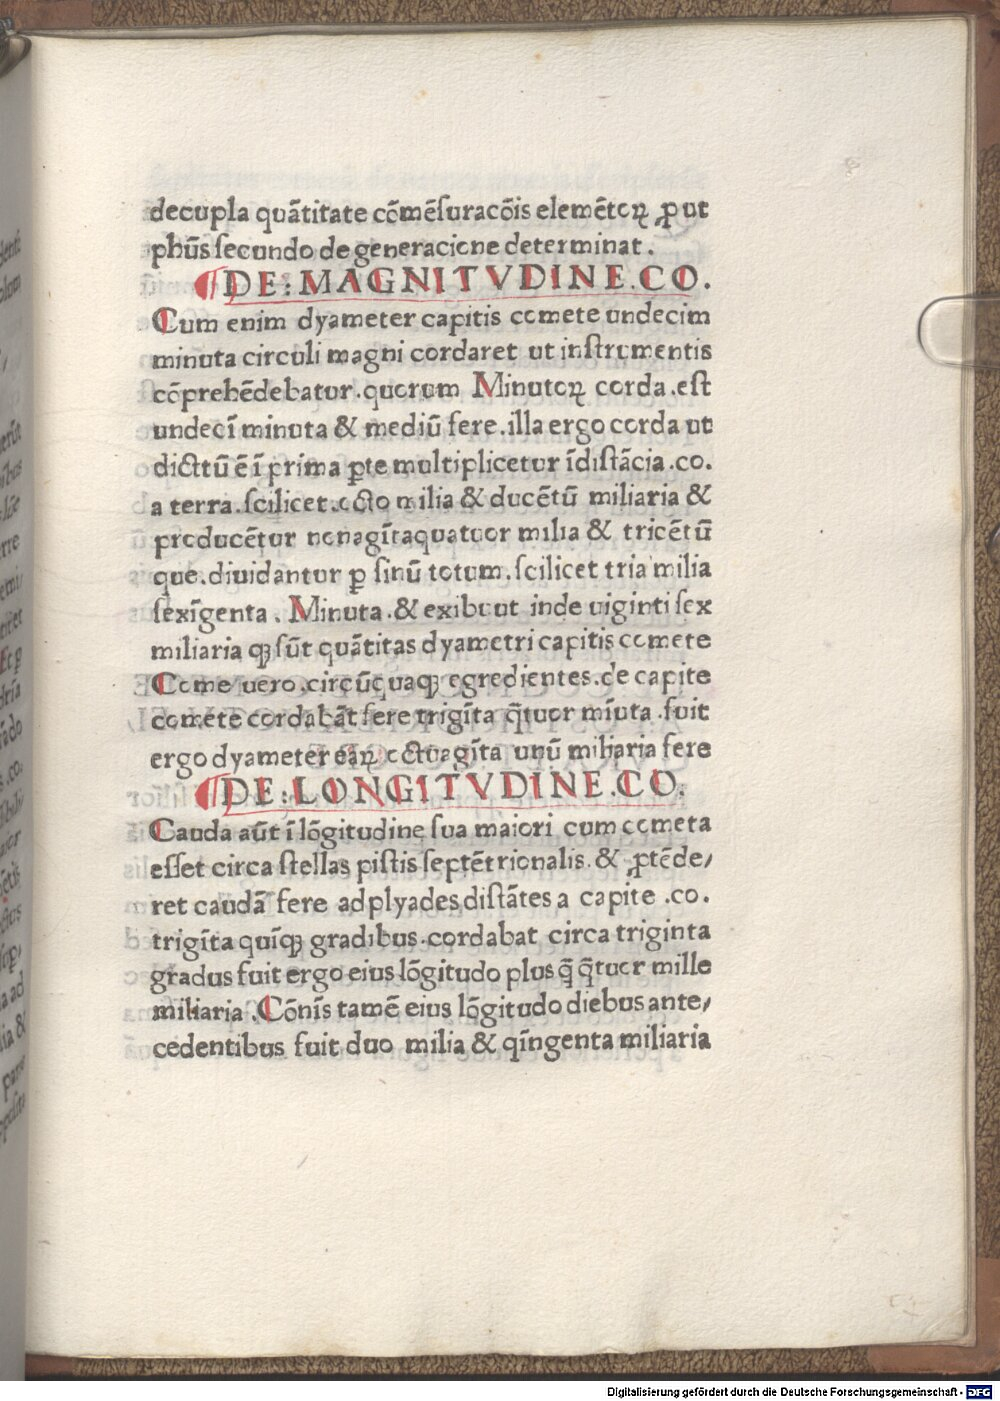 decupla quãtitate cõmẽſuracõis elemẽtoꝝ ꝓut
phũs ſecundo de generacione determinat.
¶DE:MAGNITVDINE.CO.
Cum enim dyameter capitis comete undecim
minuta circuli magni cordaret ut inſtrumentis
cõprehẽdebatur.quorum Minutoꝝ corda.eſt
undecĩ minuta & mediũ fere.illa ergo corda ut
dictũ ẽ ĩ prima ꝑte multiplicetur ĩdiſtãcia.co.
a terra.ſcilicet.octo milia & ducẽtũ miliaria &
producẽtur nonagĩtaquatuor milia & tricẽtũ
que.diuidantur ꝑ ſinũ totum.ſcilicet tria milia
ſexĩgenta. Minuta.& exibunt inde uiginti ſex
miliaria qꝫ ſũt quãtitas dyametri capitis comete
Come uero.circũquaqꝫ egredientes.de capite
comete cordabãt fere trigĩta q̃tuor mĩuta.fuit
ergo dyameter eaꝝ octuagĩta unũ miliaria fere
¶DE:LONGITVDINE.CO.
Cauda aũt ĩ lõgitudine ſua maiori cum cometa
eſſet circa ſtellas piſtis ſeptẽtrionalis.& ꝓtẽde/
ret caudã fere adplyades diſtãtes a capite .co.
trigĩta quĩqꝫ gradibus.cordabat circa triginta
gradus fuit ergo eius lõgitudo plusq̃ q̃tuor mille
miliaria .Cõnĩs tamẽ eius lõgitudo diebus ante/
cedentibus fuit duo milia & qĩngenta miliaria
Digitalisierung gefördert durch die Deutsche Forschungsgemeinschaft - DFG